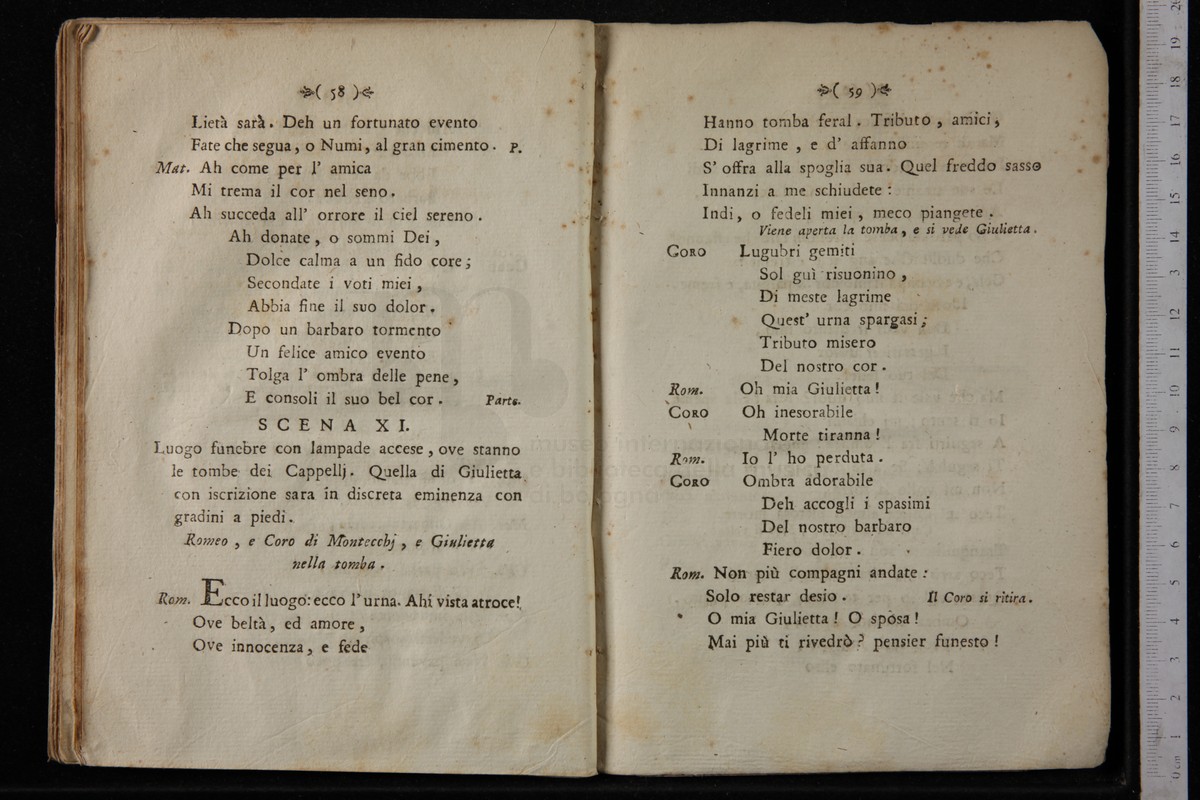 ( 58 )
Lietà sarà. Deh un fortunato evento
Fate che segua, o Numi, al gran cimento. P.
Mat. Ah come per l' amica
Mi trema il cor nel seno.
Ah succeda all' orrore il ciel sereno.
Ah donate, o sommi Dei,
Dolce calma a un fido core;
Secondate i voti miei,
Abbia fine il suo dolor.
Dopo un barbaro tormento
Un felice amico evento
Tolga l' ombra delle pene,
E consoli il suo bel cor. Parte.
SCENA XI.
Luogo funebre con lampade accese, ove stanno
le tombe dei Cappellj. Quella di Giulietta
con iscrizione sara in discreta eminenza con
gradini a piedi.
Romeo, e Coro di Montecchj, e Giulietta
nella tomba.
Rom. Ecco il luogo: ecco l' urna. Ahi vista atroce!
Ove beltà, ed amore,
Ove innocenza, e fede
( 59 )
Hanno tomba feral. Tributo, amici,
Di lagrime, e d' affanno
S' offra alla spoglia sua. Quel freddo sasso
Innanzi a me schiudete:
Indi, o fedeli miei, meco piangete.
Viene aperta la tomba, e si vede Giulietta.
CORO Lugubri gemiti
Sol guì risuonino,
Di meste lagrime
Quest' urna spargasi;
Tributo misero
Del nostro cor.
Rom. Oh mia Giulietta!
CORO Oh inesorabile
Morte tiranna!
Rom. Io l' ho perduta.
CORO Ombra adorabile
Deh accogli i spasimi
Del nostro barbaro
Fiero dolor.
Rom. Non più compagni andate:
Solo restar desio. Il Coro si ritira.
O mia Giulietta! O sposa!
Mai più ti rivedrò? pensier funesto!